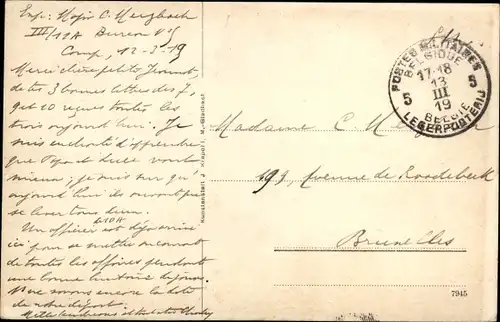 Exp: Major C. Merzbach
III/10A Bureau V5
Camp, 12-3-19
Merci chère petite Jeannot,
de tes 3 bonnes lettres des 7,
9 et 10 reçues toutes les
trois aujourd'hui. Je
suis enchanté d'apprendre
que Papa et vont
mieux; je suis sûr que
aujourd'hui ils auront pu
se lever tous deux.
10A
Un officier est déjà arrivé
ici pour se mettre au courant
de toutes les affaires pendant
une bonne huitaine de jours.
Nous ne savons encore la date
de notre départ.
Mille tendresses
Kunstanstalt J. M.-Gladbach
POSTES MILITAIRES
BELGIQUE
17-18
13
III
19
5 5
BELGIE
LEGERPOSTERIJ
Madame C Merzbach
193, Avenue de Roodebeek
Bruxelles
7945